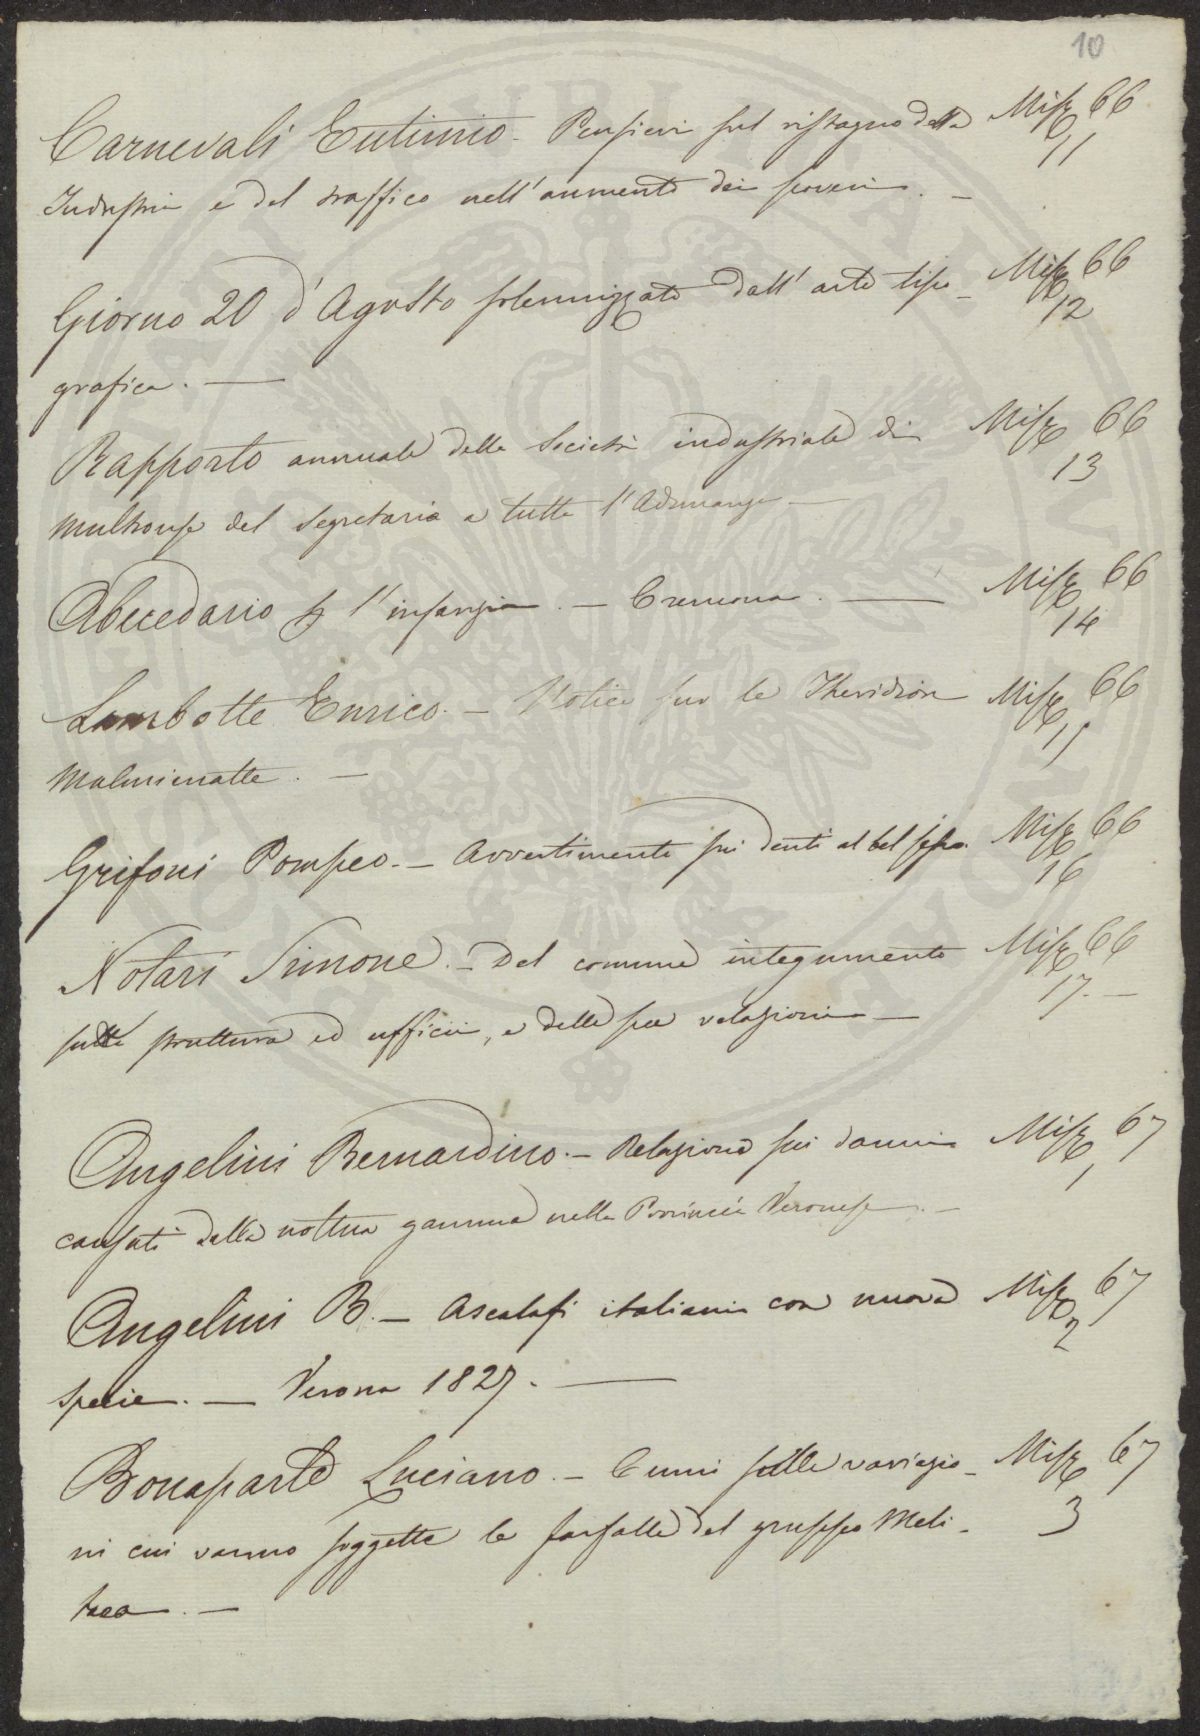 10
Carnevali Eutimio - Pensieri sul ristagno della Misc 66
11
Industria e del traffico nell'aumento dei poveri. -
Giorno 20 d'Agosto solennizzato dall'arte tipo- Misc 66
12
grafica. —
Rapporto annuale della Società industriale di Misc 66
13
Mulhouse del Segretario a tutta l'Adunanza —
Abecedario p l'infanzia. - Cremona. — Misc 66
14
Lambotte Enrico. - Notice sur le Theridion Misc 66
15
Malmignatte. —
Grifoni Pompeo. - Avvertimenti sui denti al bel sesso. Misc 66
16
Notari Simone. - Del comune integumento Misc 66
17. -
sulla struttura ed ufficii, e delle sue relazioni —
Angelini Bernardino. - Relazione sui danni Misc 67
1
causati dalla nottua gamma nella Provincia Veronese. -
Angelini B. - Ascalafi italiani con nuova Misc 67
2
specie. — Verona 1827. —
Bonaparte Luciano. - Cenni sulle variazio- Misc 67
3
ni cui vanno soggette le farfalle del gruppo Meli-
taea. —